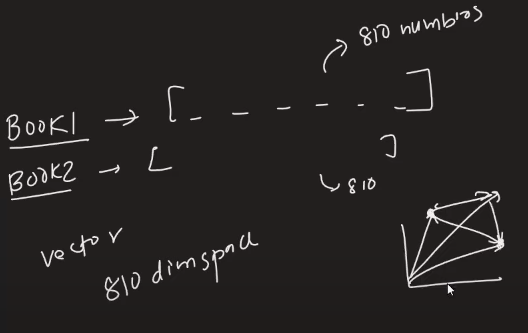 810 numbros
BOOK1 → [ _ _ _ _ _ _ ]
BOOK2 → [ ]
↳ 810
vector
810 dimspace